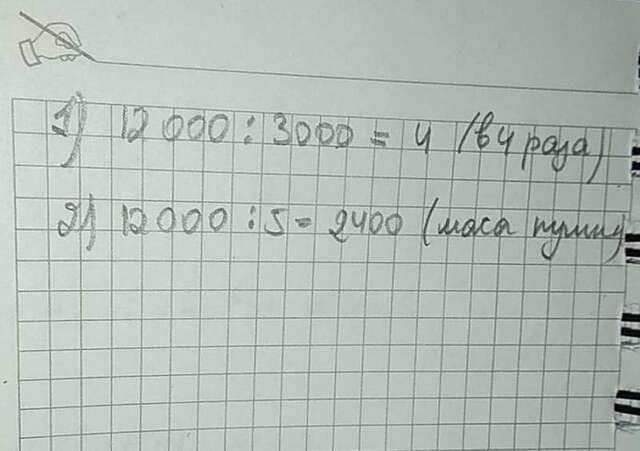 1) 12 000 : 3000 = 4 (в 4 раза)
2) 12000 : 5 = 2400 (маса пумы)